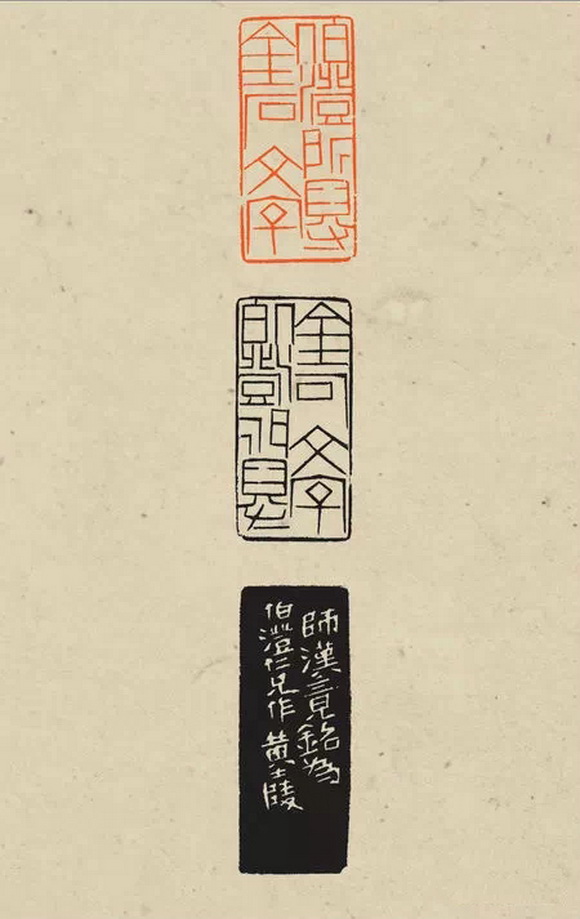 伯澄所得
金石文字
伯澄所得
金石文字
師漢竟銘為
伯澄仁兄作 黄士陵